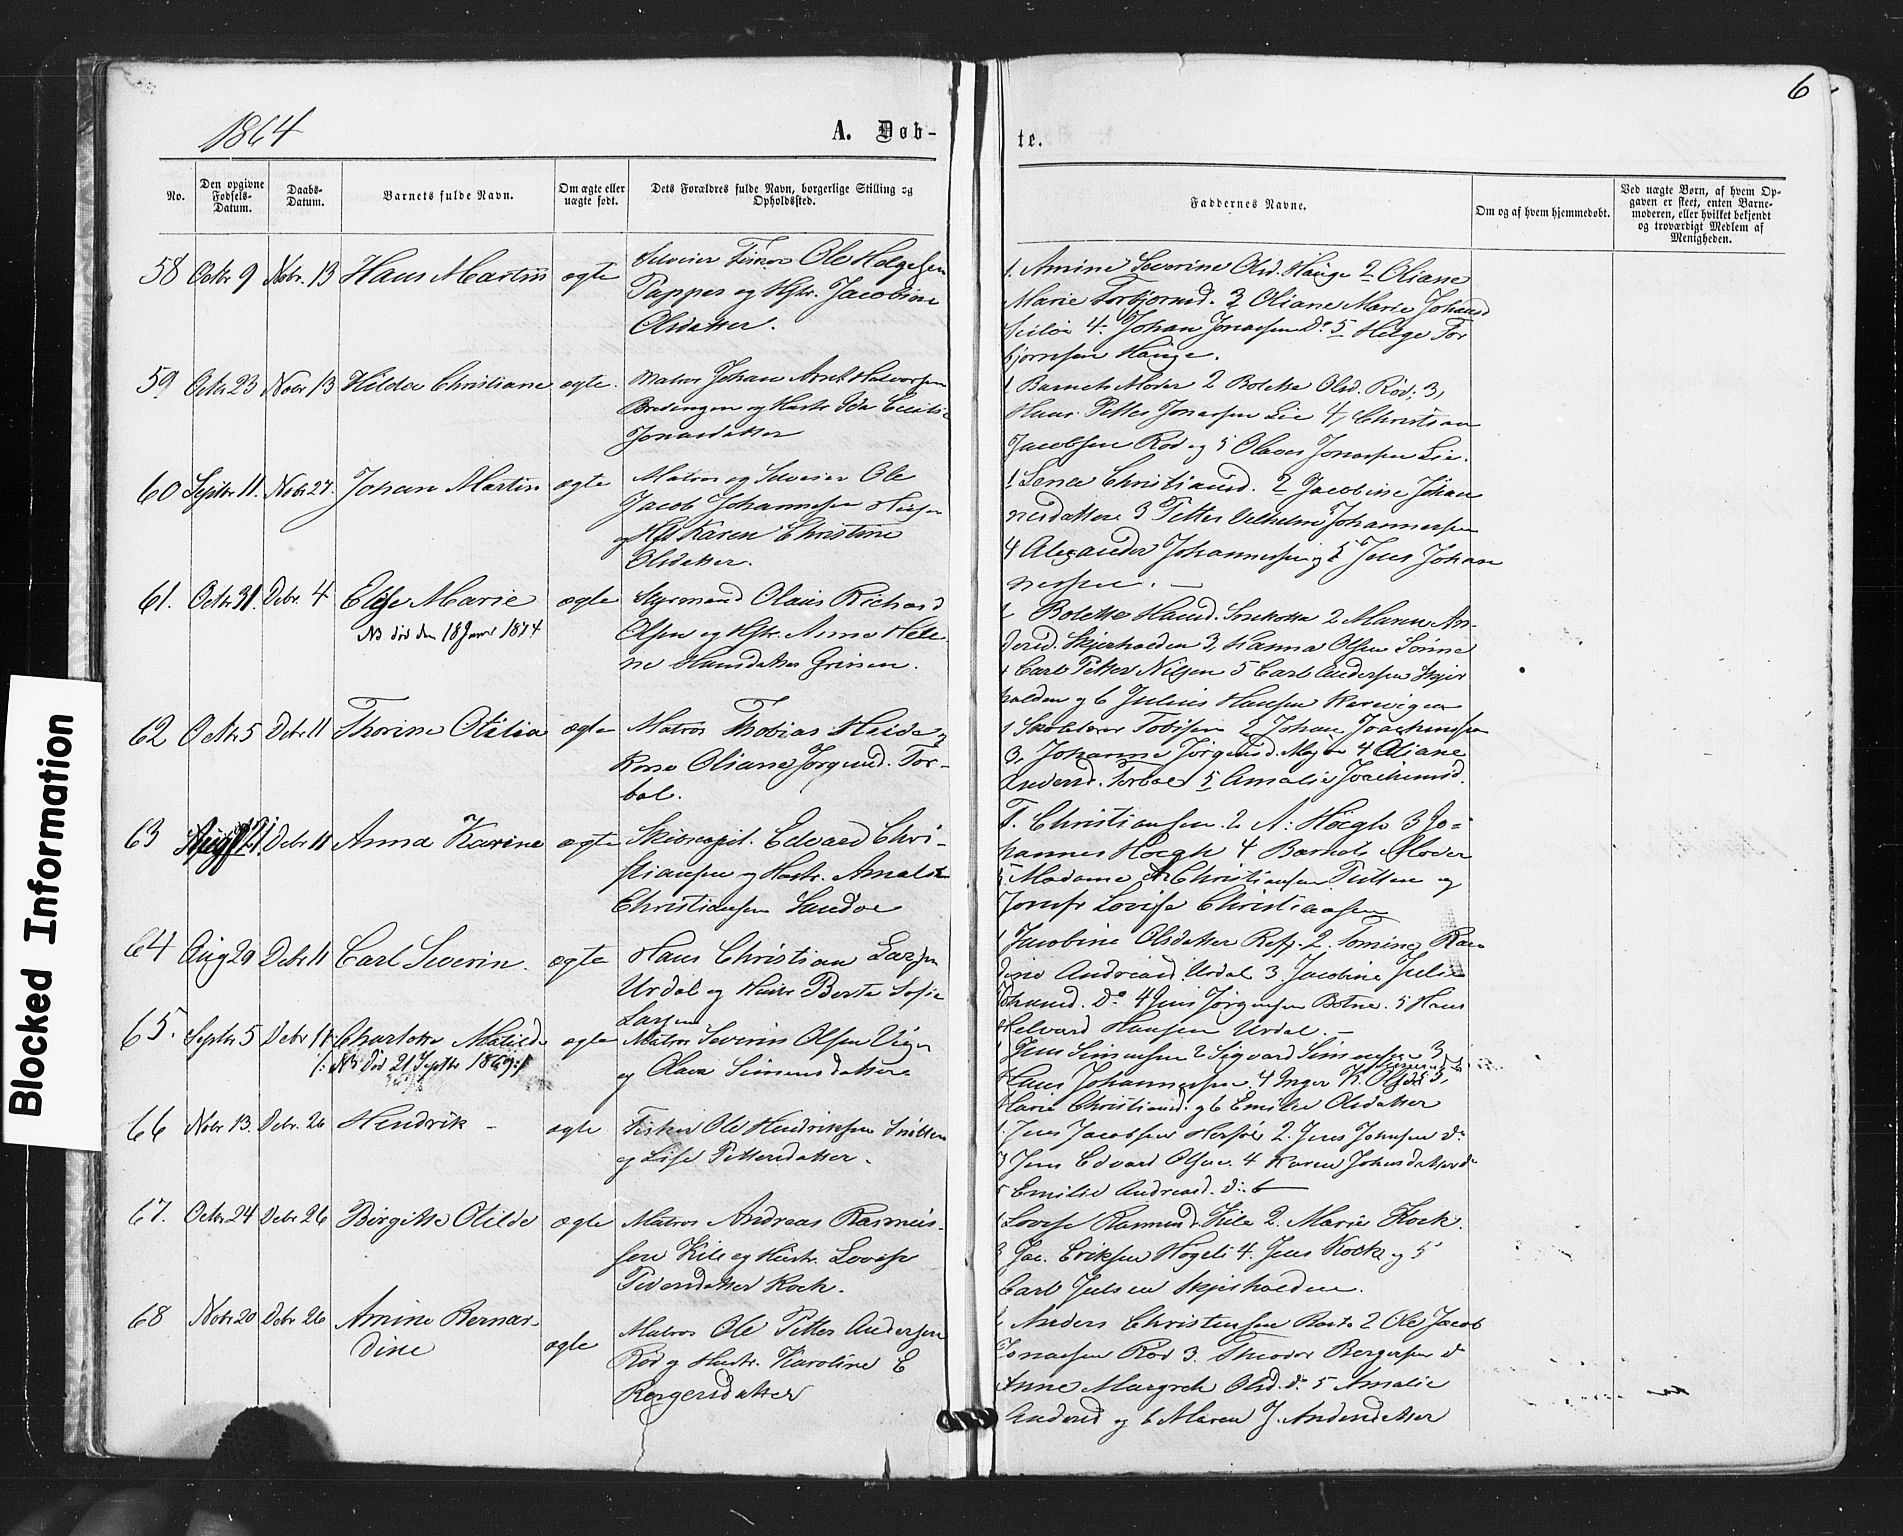 6
1864
A. Døb-
te.
No.
Den opgivne
Fødsels-
Datum.
Daabs-
Datum.
Barnets fulde Navn.
Om ægte eller
uægte født.
Dets Forældres fulde Navn, borgerlige Stilling og
Opholdssted.
Faddernes Navne.
Om og af hvem hjemmedøbt.
Ved uægte Børn, af hvem Op-
gaven er skeet, enten Barne-
moderen, eller hvilket bekjendt
og troværdigt Medlem af
Menigheden.
58 Octbr 9 Novbr. 13 Hans Martin ægte Selveier Ole
og Hstr. Jacobine
Olsdatter.
1. Amine Severine Olsd. Hauge 2 Oliane
Marie Torbjørnsd. 3 Oliane Marie Johansd
4. Johan Jonassen Do 5 Helge Tor
bjørnsen Hauge.
59 Octbr 23 Novbr 13 Hilda Christiane ægte. Matros Johan
og Hustr. Ida
Jonasdatter
1 Barnets Moder 2 Bolette Olsd. Rød; 3,
Hans Petter Jonassen Lie 4, Christian
Jacobsen Rød og 5 Olaves Jonassen Lie.
60 Septbr 11. Novbr 27. Johan Martin ægte Matros og Selveier Ole
Jacob Johannesen
og Karen Christine
Olsdatter.
1 Lena Christiansd. 2 Jacobine Johan
nesdatter 3 Petter Vilhelm Johannessen
4 Alexander Johannessen og 5 Jens Johan
nessen.
61. Octbr 31. Debr. 4 Elise Marie ægte Styrmand Olaus Richard
NB død den 18 Janr 1874
Olsen og Hstr. Anne Hele
ne Hansdatter Grinen.
1 Bolette Hansd. 2 Maren An-
dersd. Skjerholden 3, Hanna Olsen
4 Carl Petter Nilsen 5 Carl Andersen Skjer
holden og 6 Julius Hansen
62 Octbr 5 Debr 11 Thorine Otilia ægte Matros Thobias Heide
Kone Oliane Jørgensd. Tor-
bal.
1 Tobisen 2 Johan Joachimsen
3, Johanne Jørgensd. 4 Oliane
Andersd. Torbal 5 Amalie Joachimsd.
63 Debr 11 Anna Karine ægte Skibscapit. Edvard Chri-
stiansen og Hustr.
Christiansen Sandøe
T. Christiansen. 2 A: Høegh 3 Jo-
hannes Høegh 4 Barnets Moder
5 Madame Christiansen og
Jomfr Lovise Christiansen
64 Aug 29 Debr 11 Carl Severin. ægte Hans Christian Larsen
Urdal og Hustr Berte Sofie
Larsen
1 Jacobine Olsdatter 2. Tomine
Andreasd. Urdal 3 Jacobine Julie
Do 4 Jens Jørgensen Botne. 5 Hans
Helvard Hansen Urdal.
65. Septbr 5 Debr Charlotte Matilde ægte Matros Severin Olsen
/: NB Død 21 Septbr 1869:/
og Olava Simensdatter
1 Jens Simensen 2 Sigvard Simensen 3
Hans Johannessen 4 Inger K. Olsd 5,
Marie Christiansd. og 6 Emilie Olsdatter
66 Novbr 13. Debr. 26 Hendrik ægte Fisker Ole Hendriksen
og Lise Pettersdatter.
1. Jens Jacobsen 2. Jens Johnsen do
3 Jens Edvard Olsen. 4 Karen Johnsdatter do
5 Emilie Andreasd. do 6
67. Octbr 24 Debr 26 Birgitte Otilde ægte Matros Andreas Rasmus-
sen Kile og Hustr. Lovise
Kock.
1 Lovise Rasmusd. Kile 2. Marie Kock.
3 Jac. Eriksen 4. Jens Kock og 5
Carl Julsen Skjerholden.
68 Novbr 20 Debr 26 Amine Bernar-
dine
ægte
Matros Ole Petter Andersen
Rød og Hustr. Karoline E
Bergersdatter
1 Anders Christensen 2 Ole Jacob
Jonassen Rød 3. Theodor Bergersen do
Anne Margreth Olsd. do 5 Amalie
Andersd og 6 Maren J. Andersdatter
Blocked Information